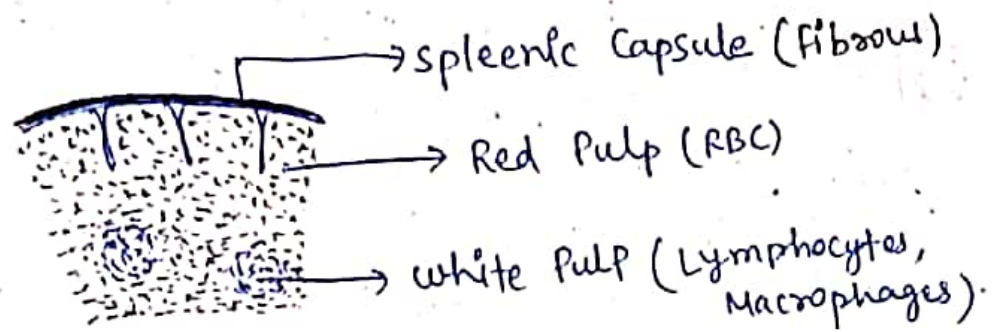 Spleenic Capsule (Fibrous)
Red Pulp (RBC)
White Pulp (Lymphocytes,
Macrophages).